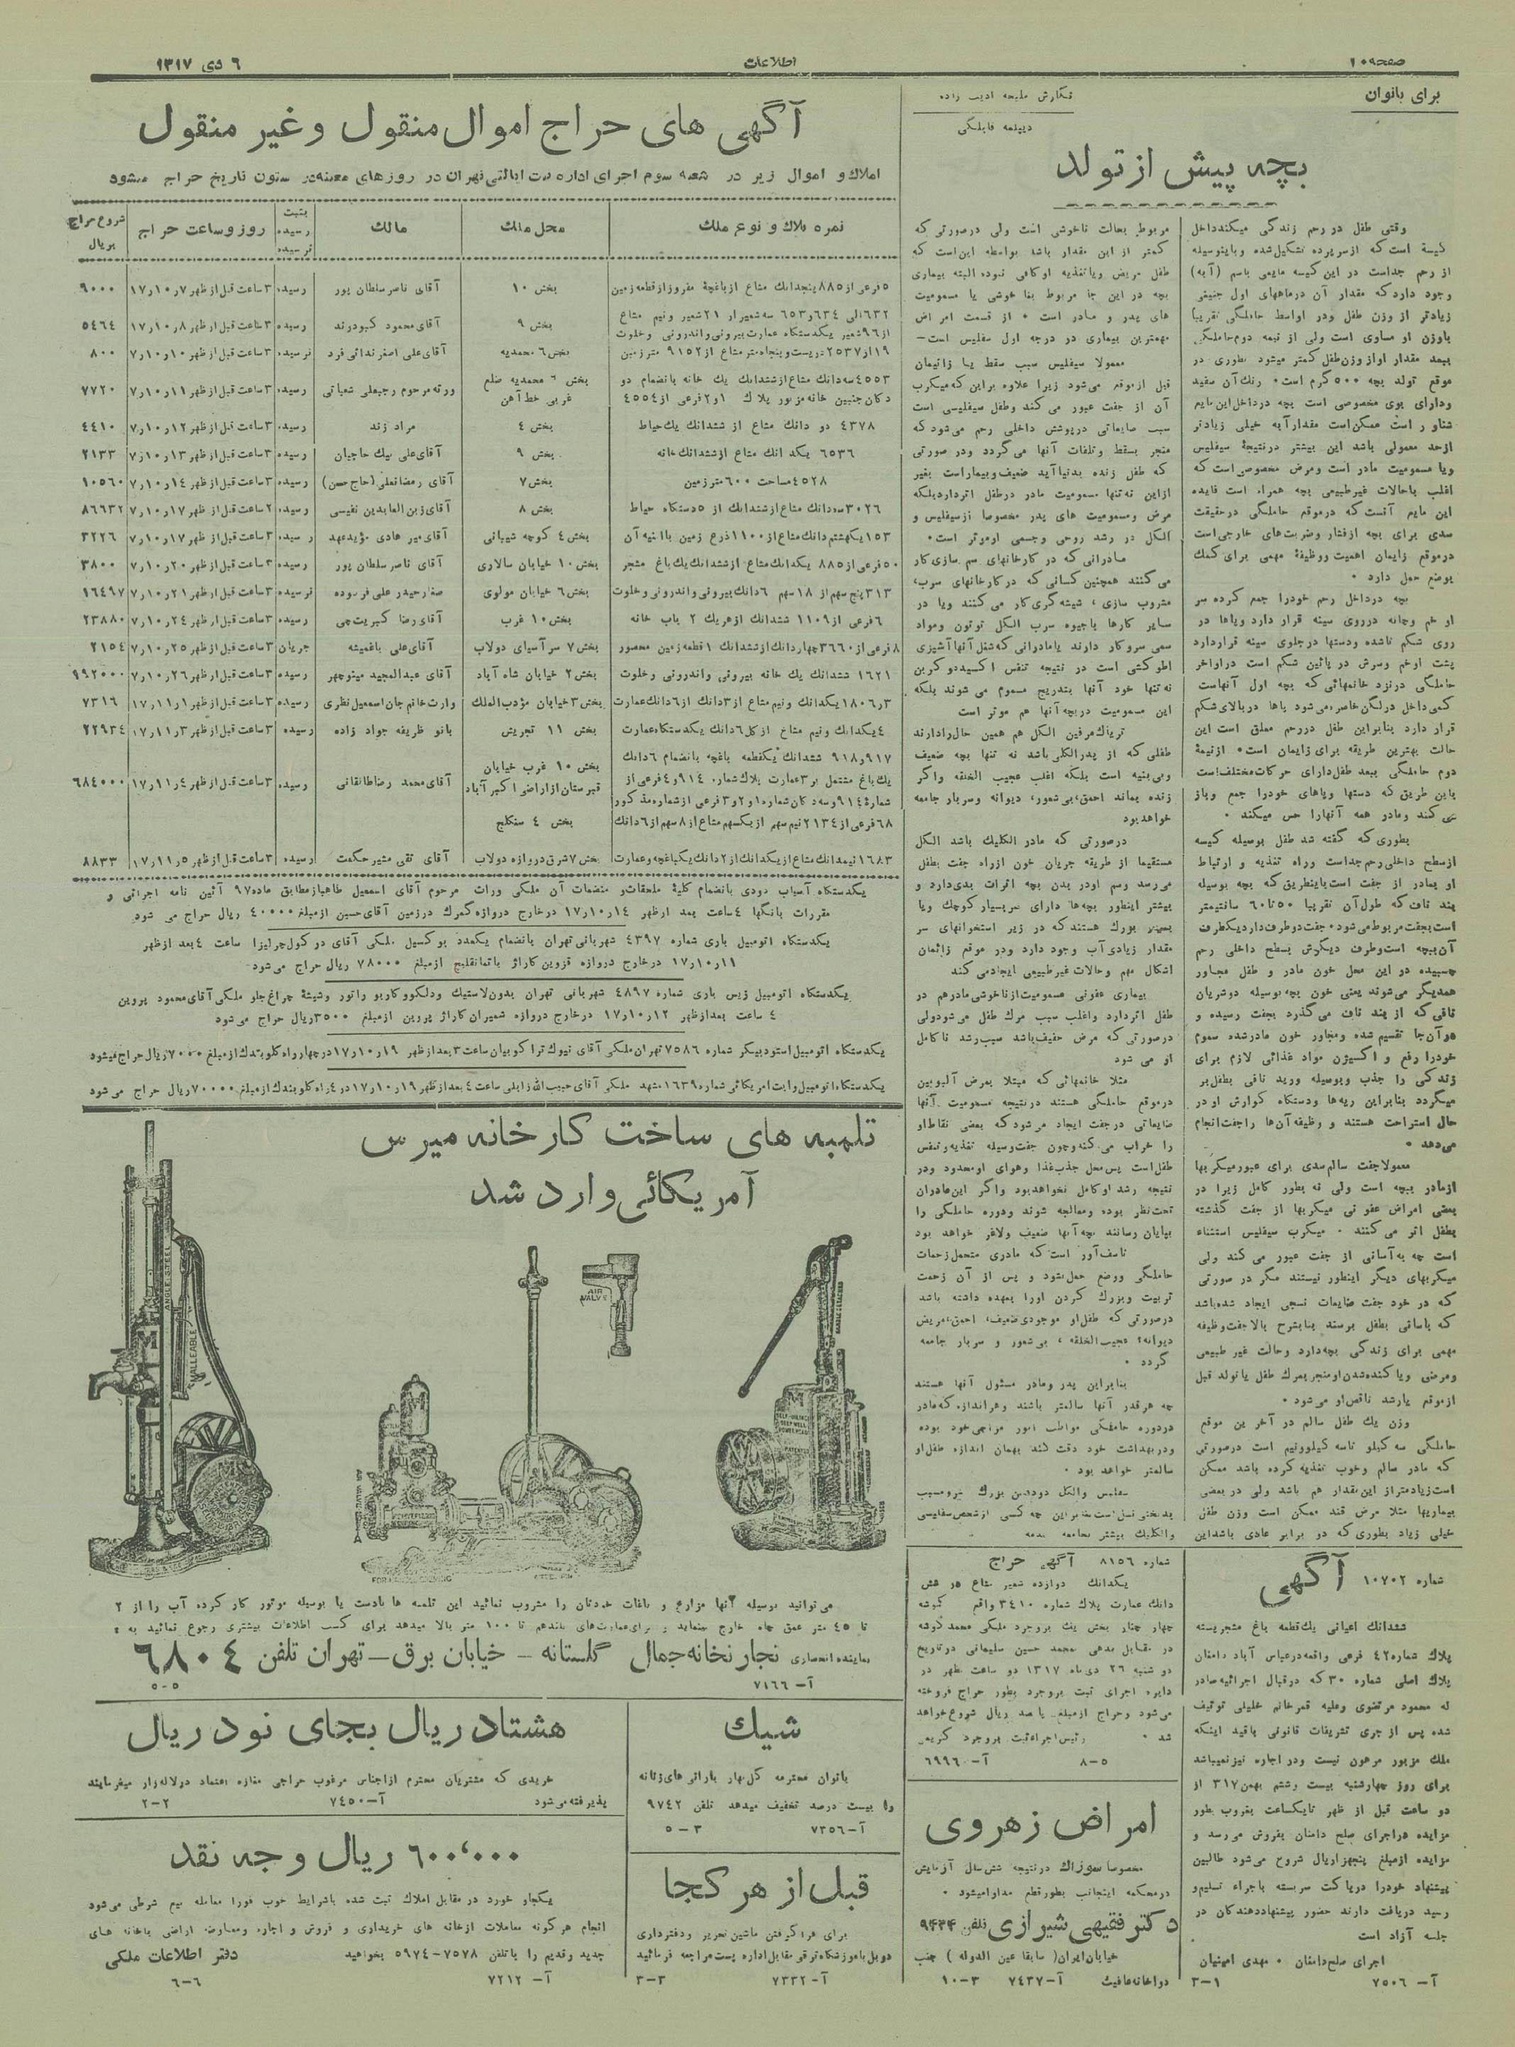 صفحه ۱۰
اطلاعات
۶ دی ۱۳۱۷
برای بانوان
نگارش ملیحه ادیب زاده
دیپلمه قابلگی
بچه پیش از تولد
وقتی طفل در رحم زندگی میکند داخل
کیسهٔ است که از سه پرده تشکیل شده و باینوسیله
از رحم جداست در این کیسه مایعی باسم (آبه)
وجود دارد که مقدار آن در ماههای اول جنینی
زیادتر از وزن طفل و در اواسط حاملگی تقریباً
باوزن او مساوی است ولی از نیمه دوم حاملگی
ببعد مقدار او از وزن طفل کمتر میشود بطوری در
موقع تولد بچه ۵۰۰ گرم است. رنك آن سفید
ودارای بوی مخصوصی است بچه در داخل این مایع
شناور است ممکن است مقدار آبه خیلی زیادتر
از حد معمولی باشد این بیشتر در نتیجهٔ سیفلیس
ویا مسمومیت مادر است ومرض مخصوصی است که
اغلب باحالات غیر طبیعی بچه همراه است فایده
این مایع آنست که در موقع حاملگی در حقیقت
سدی برای بچه از فشار وضربت های خارجی است
در موقع زایمان اهمیت ووظیفهٔ مهمی برای کمك
بوضع حمل دارد.
بچه در داخل رحم خود را جمع کرده سر
او خم وچانه در روی سینه قرار دارد وپاها در
روی شکم تا شده ودستها در جلوی سینه قرار دارد
پشت او خم وسرش در پائین شکم است در اواخر
حاملگی در نزد خانمهائی که بچه اول آنهاست
کمی داخل در لگن خاصره می شود پاها در بالای شکم
قرار دارد بنابر این طفل در رحم معلق است این
حالت بهترین طریقه برای زایمان است. از نیمهٔ
دوم حاملگی ببعد طفل دارای حرکات مختلف است
باین طریق که دستها وپاهای خود را جمع وباز
می کند ومادر همه آنها را حس میکند.
بطوری که گفته شد طفل بوسیله کیسه
از سطح داخلی رحم جداست وراه تغذیه و ارتباط
او بمادر از جفت است باینطریق که بچه بوسیله
بند ناف که طول آن تقریباً ۵۰ تا ۶۰ سانتیمتر
است بجفت مربوط می شود. جفت دو طرف دارد یکطرف
آن بچه است وطرف دیگرش بسطح داخلی رحم
چسبیده در این محل خون مادر و طفل مجاور
همدیگر می شوند یعنی خون بچه بوسیله دو شریان
نافی که از بند ناف می گذرد بجفت رسیده و
در آن جا تقسیم شده ومجاور خون مادر شده سموم
خود را رفع و اکسیژن مواد غذائی لازم برای
زندگی را جذب وبوسیله ورید نافی بطفل بر
میگردد بنابر این ریه ها ودستگاه گوارش او در
حال استراحت هستند و وظیفه آن ها را جفت انجام
می دهد.
معمولا جفت سالم سدی برای عبور میکربها
از مادر ببچه است ولی نه بطور کامل زیرا در
بعضی امراض عفونی میکربها از جفت گذشته
بطفل اثر می کنند. میکرب سیفلیس استثناء
است چه به آسانی از جفت عبور می کند ولی
میکربهای دیگر اینطور نیستند مگر در صورتی
که در خود جفت ضایعات نسجی ایجاد شده باشد
که باسانی بطفل برسند بنا بشرح بالا جفت وظیفه
مهمی برای زندگی بچه دارد وحالت غیر طبیعی
ومرضی ویا کنده شدن او منجر بمرك طفل یا تولد قبل
از موقع یا رشد ناقص او می شود.
وزن یك طفل سالم در آخرین موقع
حاملگی سه کیلو تا سه کیلوونیم است در صورتی
که مادر سالم وخوب تغذیه کرده باشد ممکن
است زیادتر از این مقدار هم باشد ولی در بعضی
بیماریها مثلا مرض قند ممکن است وزن طفل
خیلی زیاد بطوری که دو برابر عادی باشد این
مربوط بحالت ناخوشی است ولی در صورتی که
کمتر از این مقدار باشد بواسطه این است که
طفل مریض ویا تغذیه او کافی نبوده البته بیماری
بچه در این جا مربوط بنا خوشی یا مسمومیت
های پدر و مادر است. از قسمت امراض
مهمترین بیماری در درجه اول سفلیس است—
معمولا سیفلیس سبب سقط یا زائیمان
قبل از موقع می شود زیرا علاوه براین که میکرب
آن از جفت عبور می کند وطفل سیفلیسی است
سبب ضایعاتی در پوشش داخلی رحم می شود که
منجر بسقط وتلفات آنها می گردد ودر صورتی
که طفل زنده بدنیا آید ضعیف وبیمار است بغیر
از این نه تنها مسمومیت مادر در طفل اثر دارد بلکه
مرض ومسمومیت های پدر مخصوصاً از سیفلیس و
الکل در رشد روحی وجسمی او موثر است.
مادرانی که در کارخانهای سم سازی کار
می کنند همچنین کسانی که در کارخانهای سرب،
مشروب سازی، شیشه گری کار می کنند ویا در
سایر کارها باجیوه سرب الکل توتون ومواد
سمی سروکار دارند یا مادرانی که شغل آنها آشپزی
اطو کشی است در نتیجه تنفس اکسید دو کربن
نه تنها خود آنها بتدریج مسموم می شوند بلکه
این مسمومیت در بچه آنها هم موثر است
تریاك مرفین الکل هم همین حال را دارند
طفلی که از پدر الکلی باشد نه تنها بچه ضعیف
وبی بنیه است بلکه اغلب عجیب الخلقه واگر
زنده بماند احمق، بی شعور، دیوانه وسربار جامعه
خواهد بود
در صورتی که مادر الکلیك باشد الکل
مستقیماً از طریقه جریان خون از راه جفت بطفل
می رسد وسم او در بدن بچه اثرات بدی دارد و
بیشتر اینطور بچه ها دارای سر بسیار کوچك ویا
بسیار بزرك هستند که در زیر استخوانهای سر
مقدار زیادی آب وجود دارد ودر موقع زائمان
اشکال مهم وحالات غیر طبیعی ایجاد می کند
بیماری عفونی مسمومیت از ناخوشی مادر هم در
طفل اثر دارد واغلب سبب مرك طفل می شود ولی
در صورتی که مرض خفیف باشد سبب رشد نا کامل
او می شود
مثلا خانمهائی که مبتلا بمرض آلبومین
در موقع حاملگی هستند در نتیجه مسمومیت آنها
ضایعاتی در جفت ایجاد می شود که بعضی نقاط او
را خراب می کند وچون جفت وسیله تغذیه وتنفس
طفل است پس محل جذب غذا وهوای او محدود ودر
نتیجه رشد او کامل نخواهد بود واگر این مادران
تحت نظر بوده ومعالجه شوند ودوره حاملگی را
بپایان رسانند بچه آنها ضعیف ولاغر خواهد بود
تاسف آور است که مادری متحمل زحمات
حاملگی ووضع حمل شود و پس از آن زحمت
تربیت وبزرك کردن او را بعهده داشته باشد
در صورتی که طفل او موجودی ضعیف، احمق، مریض
دیوانه، عجیب الخلقه، بی شعور و سربار جامعه
گردد.
بنابر این پدر ومادر مسئول آنها هستند
چه هر قدر آنها سالمتر باشند وهر اندازه که مادر
در دوره حاملگی مواظب امور مزاجی خود بوده
ودر بهداشت خود دقت کند بهمان اندازه طفل او
سالمتر خواهد بود.
سفلیس والکل دو دشمن بزرك
آگهی های حراج اموال منقول و غیر منقول
املاك و اموال زیر در شعبه سوم اجرای اداره ثبت ایالتی تهران در روزهای معینه در ستون تاریخ حراج میشود
نمره پلاك و نوع ملك
محل ملك
مالك
بثبت رسیده نرسیده
روز و ساعت حراج
شروع حراج بریال
۵ فرعی از ۸۸۵ پنجدانك مشاع از باغچهٔ مفروز از قطعه زمین بخش ۱۰ آقای ناصر سلطان پور رسیده ۳ ساعت قبل از ظهر ۱۷ر۱۰ر۷ ۹۰۰۰
۶۳۲ الی ۶۳۴ و ۶۵۳ سه شعیر از ۲۱ شعیر ونیم مشاع
از ۹۶ شعیر یکدستگاه عمارت بیرونی واندرونی وخلوت بخش ۹ آقای محمود کبودرند رسیده ۳ ساعت قبل از ظهر ۱۷ر۱۰ر۸ ۵۴۶۴
۱۹ از ۲۵۳۷ دویست وپنجاه متر مشاع از ۹۱۵۲ متر زمین بخش ۶ محمدیه آقای علی اصغر ندائی فرد نرسیده ۳ ساعت قبل از ظهر ۱۷ر۱۰ر۱۰ ۸۰۰
۴۵۵۳ سه دانك مشاع از ششدانك یك خانه بانضمام دو
دکان جنبین خانه مزبور پلاك ۱ و ۲ فرعی از ۴۵۵۴ بخش ۶ محمدیه ضلع غربی خط آهن ورثه مرحوم رجبعلی شعبانی رسیده ۳ ساعت قبل از ظهر ۱۷ر۱۰ر۱۱ ۷۷۲۰
۴۳۷۸ دو دانك مشاع از ششدانك یك حیاط بخش ۴ مراد زند رسیده ۳ ساعت قبل از ظهر ۱۷ر۱۰ر۱۲ ۴۴۱۰
۶۵۳۶ یکدانك مشاع از ششدانك خانه بخش ۹ آقای علی بیك حاجیان رسیده ۳ ساعت قبل از ظهر ۱۷ر۱۰ر۱۳ ۲۱۳۳
۴۵۲۸ مساحت ۶۰۰ متر زمین بخش ۷ آقای رمضانعلی (حاج حسن) رسیده ۳ ساعت قبل از ظهر ۱۷ر۱۰ر۱۴ ۱۰۵۶۰
۳۰۲۶ سه دانك مشاع از ششدانك از ۵ دستگاه حیاط بخش ۸ آقای زین العابدین نفیسی رسیده ۲ ساعت قبل از ظهر ۱۷ر۱۰ر۱۷ ۸۶۶۳۲
۱۵۳ یکهشتم دانك مشاع از ۱۱۰۰ ذرع زمین با ابنیه آن بخش ۴ کوچه شیبانی آقای میر هادی مؤیدعهد رسیده ۳ ساعت قبل از ظهر ۱۷ر۱۰ر۱۷ ۳۲۲۶
۵۰ فرعی از ۸۸۵ یکدانك مشاع از ششدانك یك باغ مشجر بخش ۱۰ خیابان سالاری آقای ناصر سلطان پور رسیده ۳ ساعت قبل از ظهر ۱۷ر۱۰ر۲۰ ۳۸۰۰
۳۱۳ پنج سهم از ۱۸ سهم ۶ دانك بیرونی واندرونی وخلوت بخش ۶ خیابان مولوی صفار حیدر علی فرسوده نرسیده ۳ ساعت قبل از ظهر ۱۷ر۱۰ر۲۱ ۱۶۴۹۷
۶ فرعی از ۱۱۰۹ ششدانك از هریك ۲ باب خانه بخش ۱۰ غرب آقای رضا کبریت چی رسیده ۳ ساعت قبل از ظهر ۱۷ر۱۰ر۲۴ ۲۳۸۸۰
۸ فرعی از ۳۶۶۰ چهار دانك از ششدانك ۱ قطعه زمین محصور بخش ۷ سر آسیای دولاب آقای علی باغمیشه جریان ۳ ساعت قبل از ظهر ۱۷ر۱۰ر۲۵ ۲۱۵۴
۱۶۲۱ ششدانك یك خانه بیرونی واندرونی وخلوت بخش ۲ خیابان شاه آباد آقای عبدالمجید مینوچهر رسیده ۳ ساعت قبل از ظهر ۱۷ر۱۰ر۲۶ ۹۹۲۰۰۰
۳ر۱۸۰۶ یکدانك ونیم مشاع از ۳ دانك از ۶ دانك عمارت بخش ۳ خیابان مؤدب الملك وارث خانم جان اسمعیل نظری رسیده ۳ ساعت قبل از ظهر ۱۷ر۱۱ر۱ ۷۳۱۶
۴ یکدانك ونیم مشاع از کل ۶ دانك یکدستگاه عمارت بخش ۱۱ تجریش بانو ظریفه جواد زاده رسیده ۳ ساعت قبل از ظهر ۱۷ر۱۱ر۳ ۲۲۹۳۴
۹۱۷ و ۹۱۸ ششدانك یکقطعه باغچه بانضمام ۶ دانك
یك باغ مشتمل بر ۳ عمارت پلاك شماره ۹۱۴ و ۴ فرعی از
شماره ۹۱۴ وسه دکان شماره ۱ و ۲ و ۳ فرعی از شماره مذکور بخش ۱۰ غرب خیابان قبرستان از اراضی اکبر آباد آقای محمد رضا طالقانی رسیده ۳ ساعت قبل از ظهر ۱۷ر۱۱ر۴ ۶۸۴۰۰۰
۶۸ فرعی از ۲۱۳۴ نیم سهم از یکسهم مشاع از ۸ سهم از ۶ دانك بخش ۴ سنگلج
۱۶۸۳ نیمدانك مشاع از یکدانك از ۲ دانك یکباغچه وعمارت بخش ۷ شرق دروازه دولاب آقای تقی مشیر حکمت رسیده ۳ ساعت قبل از ظهر ۱۷ر۱۱ر۵ ۸۸۳۳
یکدستگاه آسیاب دودی بانضمام کلیهٔ ملحقات و منضمات آن ملکی وراث مرحوم آقای اسمعیل طاهباز مطابق ماده ۹۷ آئین نامه اجرائی و
مقررات بانکها ۴ ساعت بعد از ظهر ۱۷ر۱۰ر۱۴ در خارج دروازه گمرك در زمین آقای حسین از مبلغ ۴۰۰۰۰ ریال حراج می شود.
یکدستگاه اتومبیل باری شماره ۴۳۹۷ شهربانی تهران بانضمام یکعدد بوکسیل ملکی آقای درکول جرلیزا ساعت ۴ بعد از ظهر
۱۷ر۱۰ر۱۱ در خارج دروازه قزوین گاراژ از مبلغ ۷۸۰۰۰ ریال حراج می شود.
یکدستگاه اتومبیل زیس باری شماره ۴۸۹۷ شهربانی تهران بدون لاستیك ودلکو وکاربوراتور وشیشهٔ چراغ جلو ملکی آقای محمود پروین
۴ ساعت بعد از ظهر ۱۷ر۱۰ر۱۲ در خارج دروازه شمیران گاراژ پروین از مبلغ ۳۵۰۰ ریال حراج می شود
یکدستگاه اتومبیل استودبیکر شماره ۷۵۸۶ تهران ملکی آقای نیوك تراکوبیان ساعت ۳ بعد از ظهر ۱۷ر۱۰ر۱۹ در چهار راه گلوبندك از مبلغ ۷۰۰۰ ریال حراج میشود
یکدستگاه اتومبیل وایت امریکائی شماره ۱۶۳۹ مشهد ملکی آقای حبیب الله زابلی ساعت ۴ بعد از ظهر ۱۷ر۱۰ر۱۹ در ۴ راه گلوبندك از مبلغ ۷۰۰۰۰ ریال حراج می شود
تلمبه های ساخت کارخانه میرس
آمریکائی وارد شد
ANGLE STEEL
MALLEABLE
AIR
VALVE
می توانید بوسیله آنها مزارع و باغات خودتان را مشروب نمائید این تلمبه ها بادست یا بوسیله موتور کار کرده آب را از ۲
تا ۴۵ متر عمق چاه خارج مینماید و برای عمارت های بلند هم تا ۱۰۰ متر بالا میدهد برای کسب اطلاعات بیشتری رجوع نمائید به:
نماینده انحصاری نجار نخانه جمال گلستانه — خیابان برق — تهران تلفن ۶۸۰۴
آ—۷۱۶۶
۵—۵
شماره ۸۱۵۶ آگهی حراج
یکدانك دوازده شعیر مشاع در شش
دانك عمارت پلاك شماره ۳۴۱۰ واقع کوشه
چهار چنار بخش یك بروجرد ملکی محمد کوشه
در مقابل بدهی محمد حسین سلیمانی در تاریخ
دو شنبه ۲۶ دیماه ۱۳۱۷ دو ساعت بظهر در
دایره اجرای ثبت بروجرد بطور حراج فروخته
می شود وحراج از مبلغ ریال شروع خواهد
شد. رئیس اجراء ثبت بروجرد کریمی
۵—۸ آ—۶۹۹۶
شماره ۱۰۷۰۲ آگهی
ششدانك اعیانی یك قطعه باغ مشجر بسته
پلاك شماره ۴۲ فرعی واقعه در عباس آباد دامغان
پلاك اصلی شماره ۳۰ که در قبال اجرائیه صادر
له محمود مرتضوی وعلیه قمر خانم خلیلی توقیف
شده پس از جری تشریفات قانونی باقید اینکه
ملك مزبور مرهون نیست ودر اجاره نیز نمیباشد
برای روز چهارشنبه بیست وشتم بهمن ۳۱۷ از
دو ساعت قبل از ظهر تا یکساعت بغروب بطور
مزایده در اجرای صلح دامغان بفروش می رسد و
مزایده از مبلغ پنجهزار ریال شروع می شود طالبین
پیشنهاد خود را در پاکت سر بسته باجراء تسلیم و
رسید دریافت دارند حضور پیشنهاد دهندگان در
جلسه آزاد است
اجرای صلح دامغان. مهدی امینیان
آ—۷۵۰۶ ۳—۱
امراض زهروی
مخصوصاً سوزاك در نتیجه شش سال آزمایش
در محکمه اینجانب بطور قطع مداوا میشود.
دکتر فقیهی شیرازی تلفن ۹۴۳۴
خیابان ایران (سابقا عین الدوله) جنب
دواخانه عافیت آ—۷۴۳۷ ۱۰—۳
شیك
بانوان محترمه کل بهار بارانی های زنانه
را بیست درصد تخفیف میدهد تلفن ۹۷۴۲
آ—۷۳۵۶ ۵—۳
قبل از هر کجا
برای فرا گرفتن ماشین تحریر ودفترداری
دوبل باموزشگاه ترقی مقابل اداره پست مراجعه فرمائید
آ—۷۳۳۲ ۳—۳
هشتاد ریال بجای نود ریال
خریدی که مشتریان محترم از اجناس مرغوب حراجی مغازه اعتماد در لاله زار میفرمایند
پذیرفته می شود آ—۷۴۵۰ ۲—۲
۶۰۰٬۰۰۰ ریال وجه نقد
یکجا وخورد در مقابل املاك ثبت شده باشرایط خوب فوراً معامله بیع شرطی می شود
انجام هر گونه معاملات از خانه های خریداری و فروش و اجاره ومعاوضه اراضی باخانه های
جدید وقدیم را باتلفن ۷۵۷۸—۵۹۷۴ بخواهید دفتر اطلاعات ملکی
آ—۷۲۱۲ ۶—۶